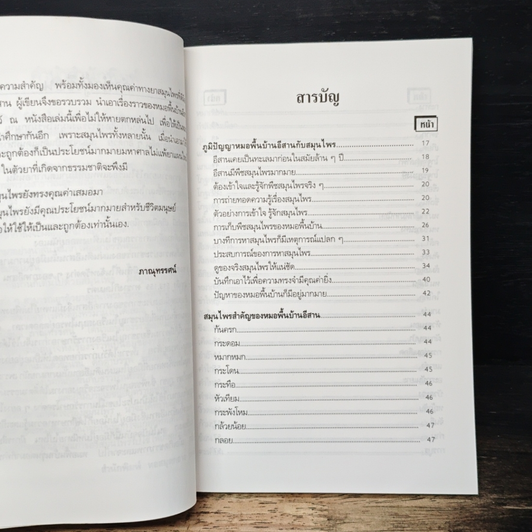 ความสำคัญ พร้อมทั้งมองเห็นคุณค่าทางยาสมุนไพร
สาน ผู้เขียนจึงขอรวบรวม นำเอาเรื่องราวของหมอพื้นบ้าน
ณ หนังสือเล่มนี้เพื่อไม่ให้หายตกหล่นไป เพื่อให้เป็น
ศึกษากันอีก เพราะสมุนไพรทั้งหลายนั้น เมื่อนำมา
และถูกต้องก็เป็นประโยชน์มากมายมหาศาลไม่แพ้ยา
ในตัวยาที่เกิดจากธรรมชาติจะพึงมี
นุนไพรยังทรงคุณค่าเสมอมา
นุนไพรยังมีคุณประโยชน์มากมายสำหรับชีวิตมนุษย์
อให้ใช้ให้เป็นและถูกต้องเท่านั้นเอง.
ภาณุทรรศน์
สารบัญ
หน้า
ภูมิปัญญาหมอพื้นบ้านอีสานกับสมุนไพร 17
อีสานเคยเป็นทะเลมาก่อนในสมัยล้าน ๆ ปี 18
อีสานมีพืชสมุนไพรมากมาย 19
ต้องเข้าใจและรู้จักพืชสมุนไพรจริง ๆ 20
การถ่ายทอดความรู้เรื่องสมุนไพร 20
ตัวอย่างการเข้าใจ รู้จักสมุนไพร 22
การเก็บพืชสมุนไพรของหมอพื้นบ้าน 26
บางทีการหาสมุนไพรก็มีเหตุการณ์แปลก ๆ 31
ประสบการณ์ของการหาสมุนไพร 33
ดูของจริงสมุนไพรให้แน่ชัด 34
บันทึกเอาไว้เพื่อความทรงจำมีคุณค่ายิ่ง 40
ปัญหาของหมอพื้นบ้านก็มีอยู่มากมาย 42
สมุนไพรสำคัญของหมอพื้นบ้านอีสาน 44
กันครก 44
กระดอม 44
หมากหมก 45
กระโดน 45
กระทือ 46
หัวเทียม 46
กระพังโหม 46
กล้วยน้อย 47
กลอย 47